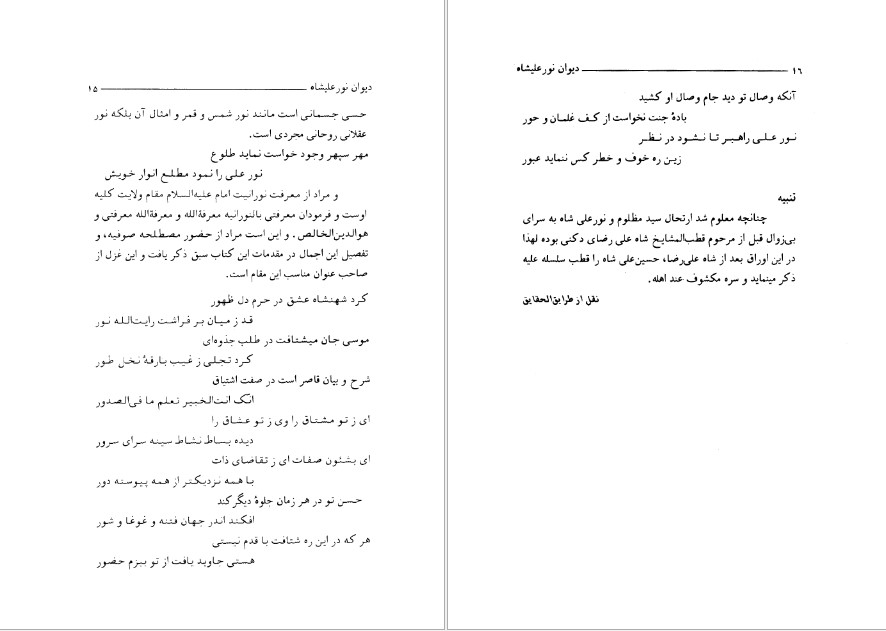 دیوان نورعلیشاه ۱۵
حسی جسمانی است مانند نور شمس و قمر و امثال آن بلکه نور
عقلانی روحانی مجردی است.
مهر سپهر وجود خواست نماید طلوع
نور علی را نمود مطلع انوار خویش
و مراد از معرفت نورانیت امام علیه‌السلام مقام ولایت کلیه
اوست و فرمودان معرفتی بالنورانیه معرفةالله و معرفةالله معرفتی و
هوالدین‌الخالص. و این است مراد از حضور مصطلحه صوفیه، و
تفصیل این اجمال در مقدمات این کتاب سبق ذکر یافت و این غزل از
صاحب عنوان مناسب این مقام است.
کرد شهنشاه عشق در حرم دل ظهور
قد ز میان بر فراشت رایت‌الله نور
موسی جان میشتافت در طلب جذوه‌ای
کرد تجلی ز غیب بارقهٔ نخل طور
شرح و بیان قاصر است در صفت اشتیاق
انک انت‌الخبیر تعلم ما فی‌الصدور
ای ز تو مشتاق را وی ز تو عشاق را
دیده بساط نشاط سینه سرای سرور
ای بشئون صفات ای ز تقاضای ذات
با همه نزدیکتر از همه پیوسته دور
حسن تو در هر زمان جلوهٔ دیگر کند
افکند اندر جهان فتنه و غوغا و شور
هر که در این ره شتافت با قدم نیستی
هستی جاوید یافت از تو ببزم حضور
۱۶ دیوان نورعلیشاه
آنکه وصال تو دید جام وصال او کشید
بادهٔ جنت نخواست از کف غلمان و حور
نور علی راهبر تا نشود در نظر
زین ره خوف و خطر کس ننماید عبور
تنبیه
چنانچه معلوم شد ارتحال سید مظلوم و نورعلی شاه به سرای
بی‌زوال قبل از مرحوم قطب‌المشایخ شاه علی رضای دکنی بوده لهذا
در این اوراق بعد از شاه علی‌رضا، حسین‌علی شاه را قطب سلسله علیه
ذکر مینماید و سره مکشوف عند اهله.
نقل از طرایق‌الحقایق